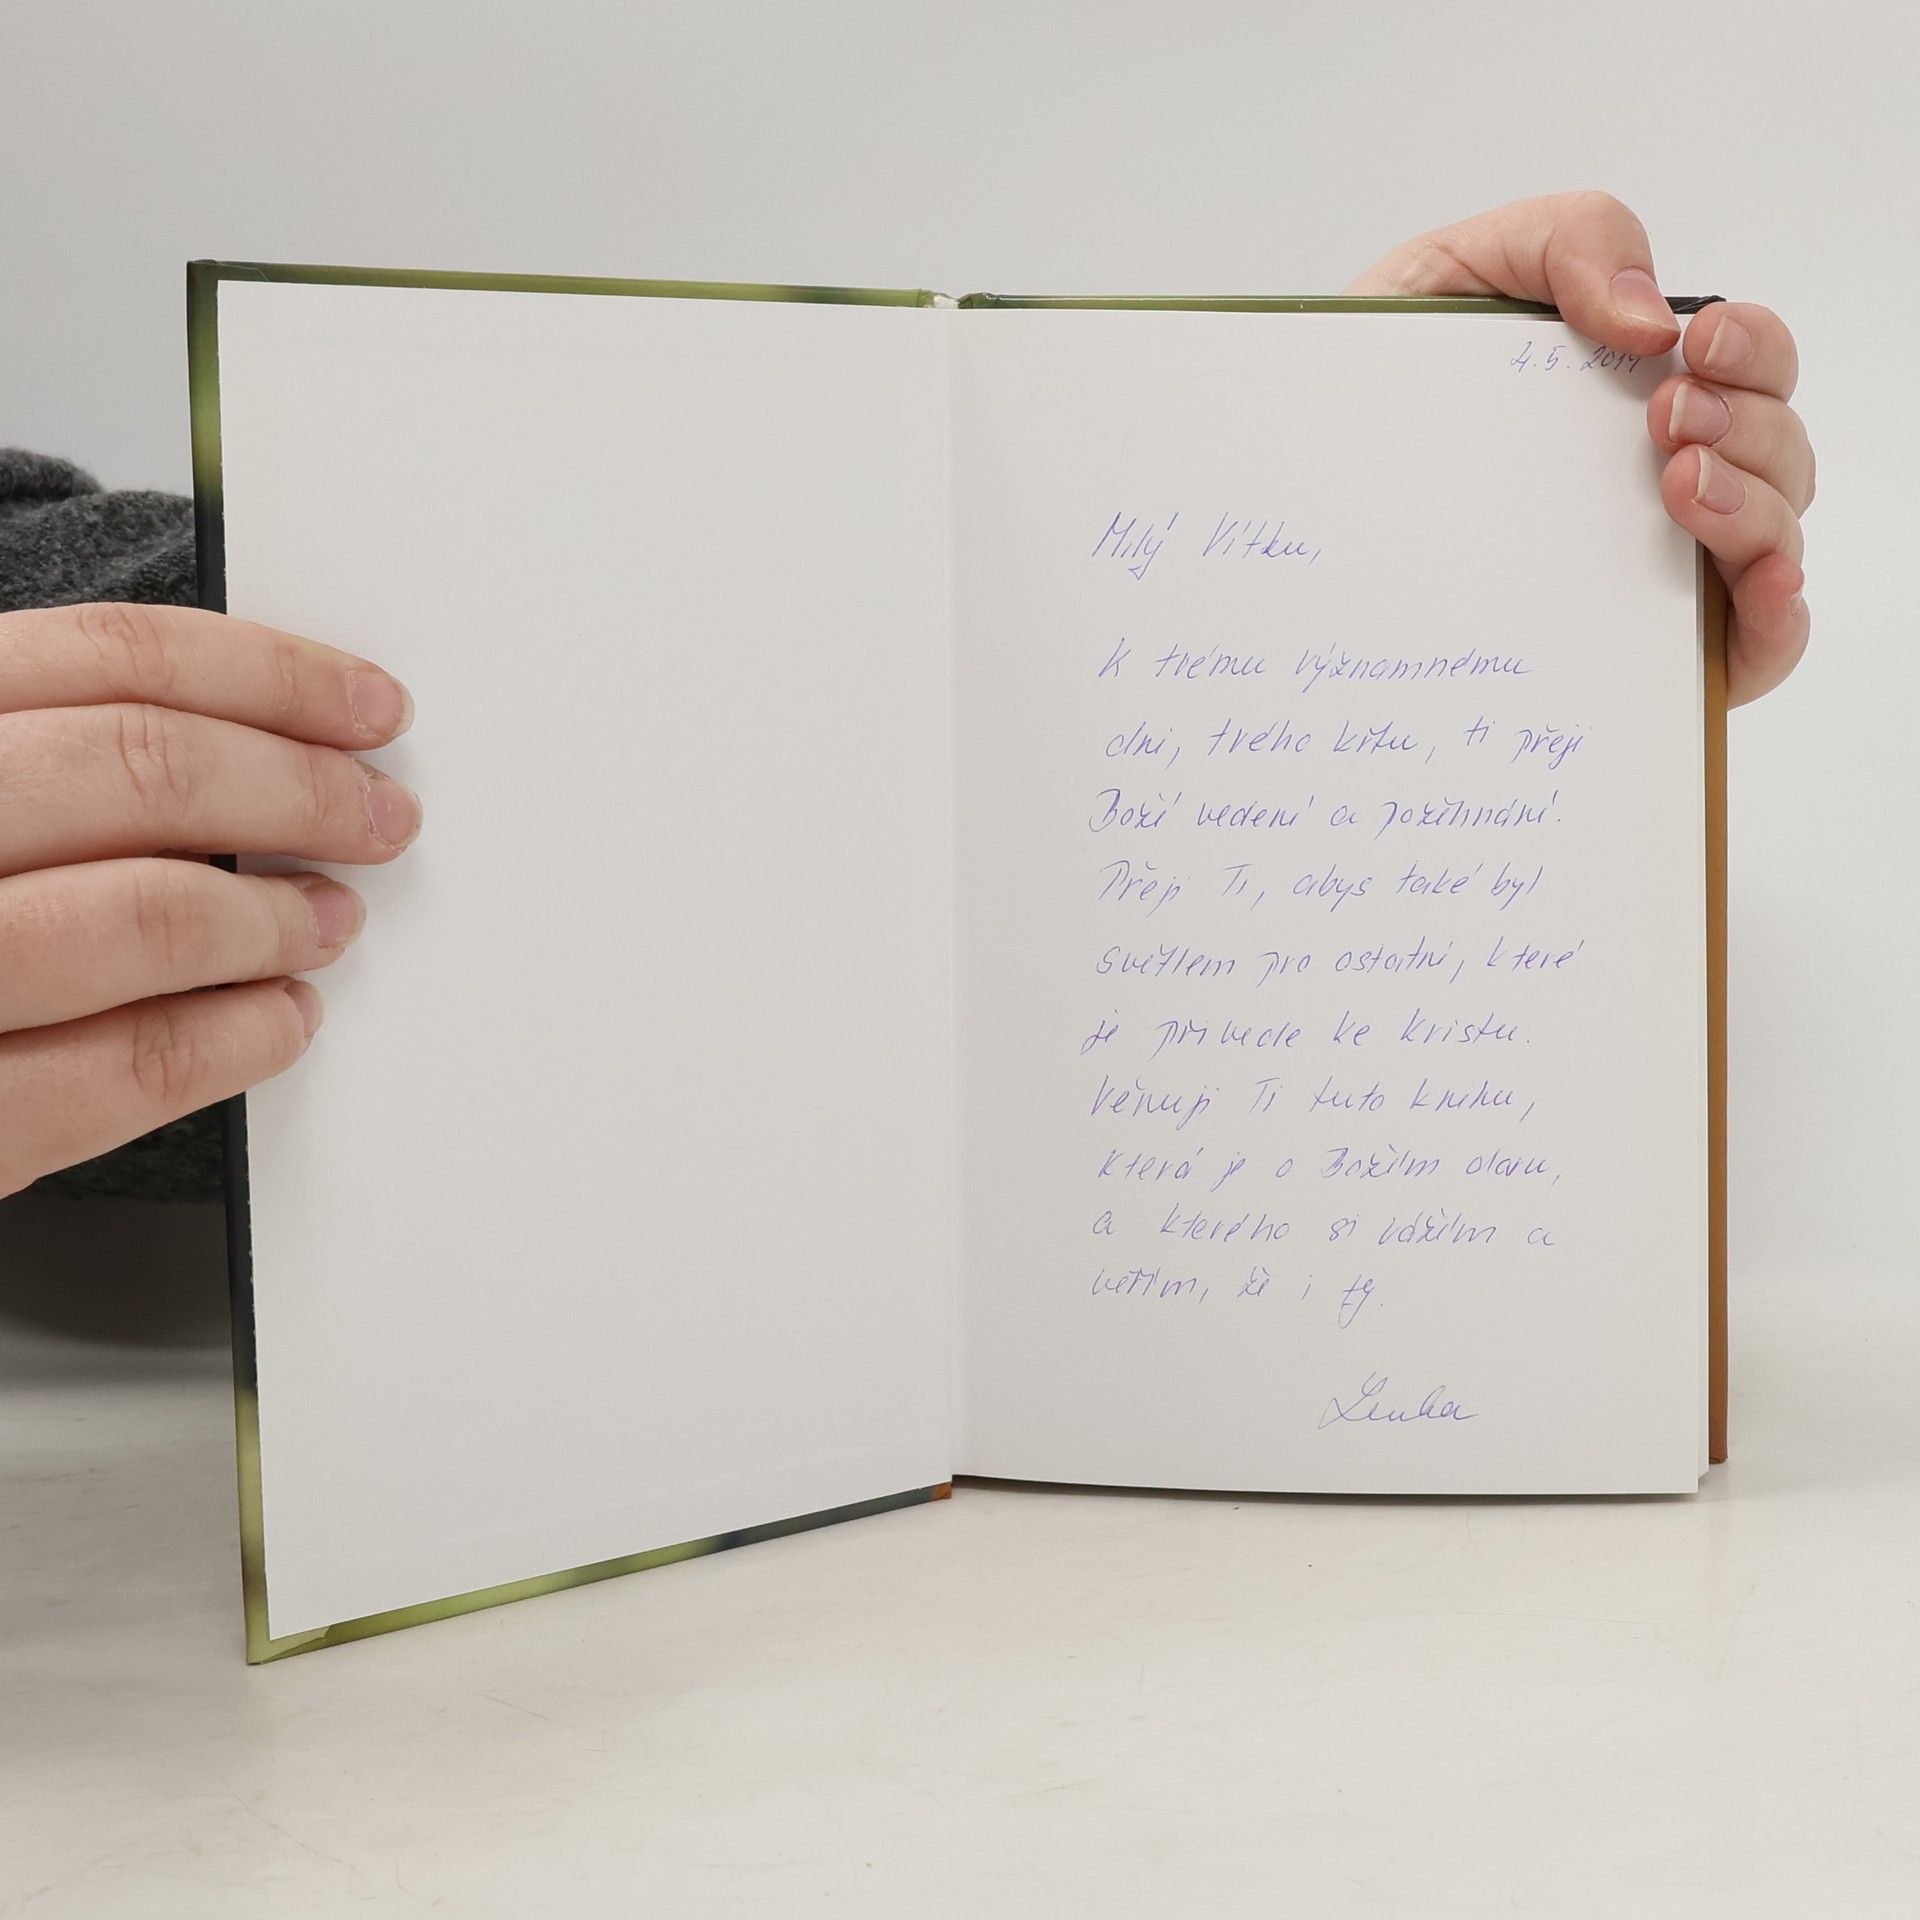 4.5. 2014
Milý Vítku,
K tvému významnému
dni, tvého křtu, ti přeji
Boží vedení a požehnání.
Přeji Ti, abys také byl
světlem pro ostatní, které
je přivede ke Kristu.
Věnuji Ti tuto knihu,
která je o Božím daru,
a kterého si vážím a
věřím, že i ty.
Lenka